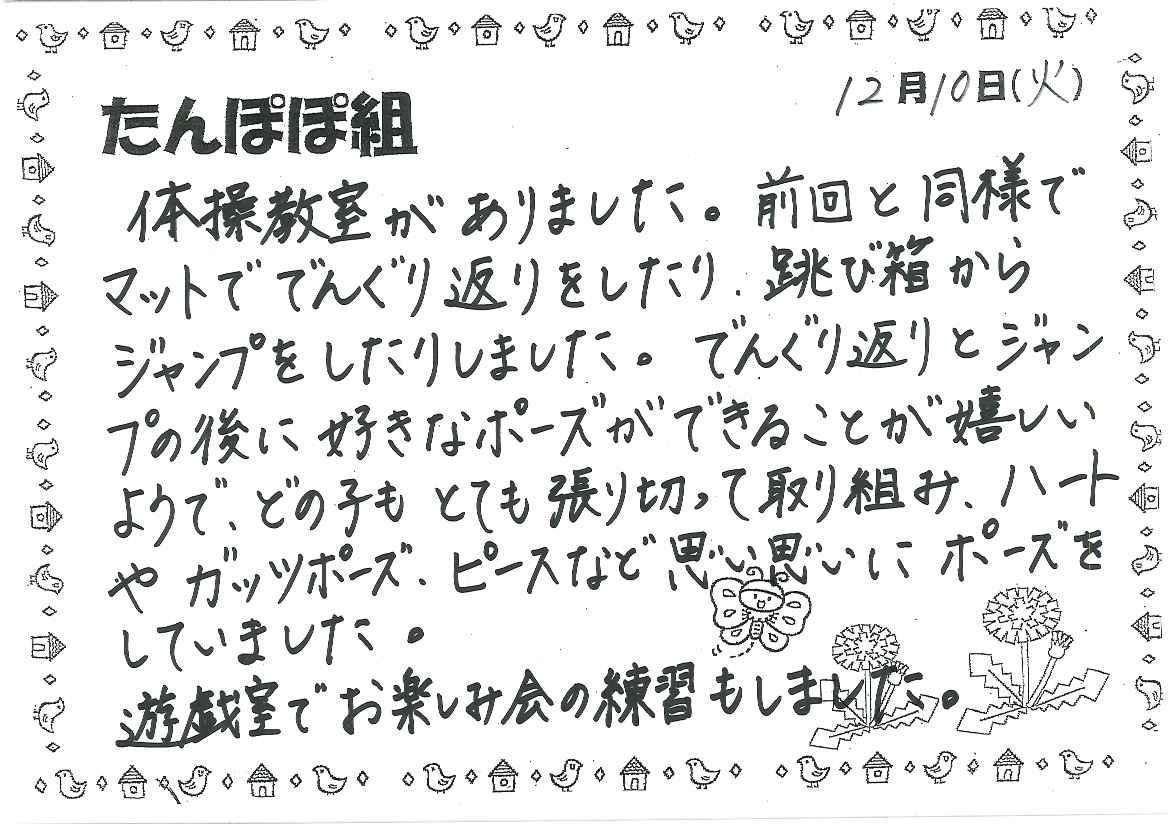 12月10日(火)
たんぽぽ組
体操教室がありました。前回と同様で
マットででんぐり返りをしたり、跳び箱から
ジャンプをしたりしました。でんぐり返りとジャン
プの後に好きなポーズができることが嬉しい
ようで、どの子もとても張り切って取り組み、ハート
やガッツポーズ、ピースなど思い思いにポーズを
していました。
遊戯室でお楽しみ会の練習もしました。